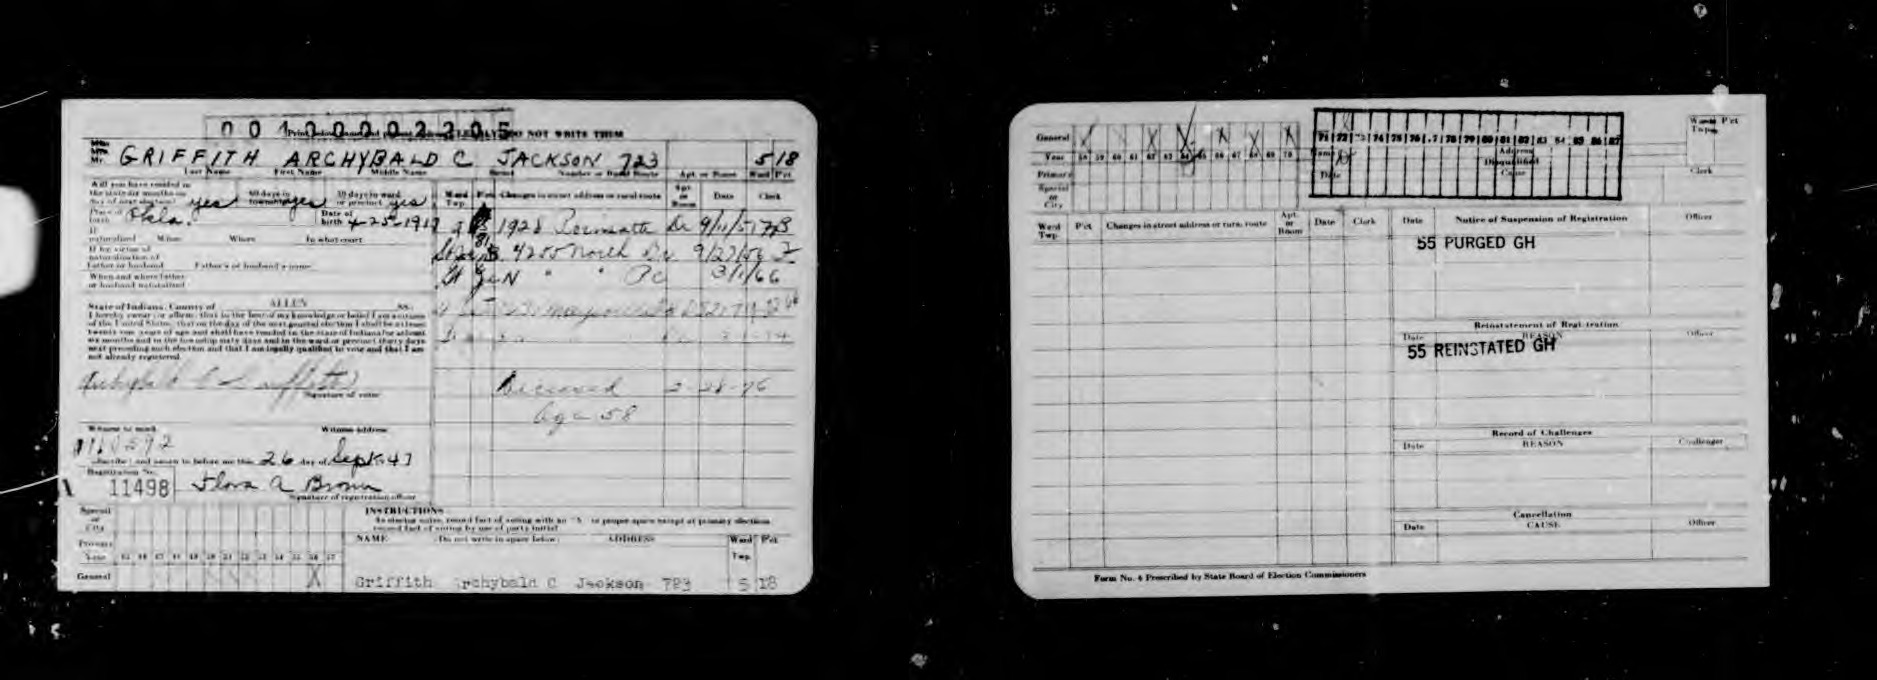 0 0 1 2 0 2 0 2 2 0 5
DO NOT WRITE THEM
Miss
Mrs.
Mr. GRIFFITH ARCHYBALD C JACKSON 723 5 18
Last Name First Name Middle Name Street Number or Rural Route Apt. or Room Ward Pct.
Will you have resided in
the state six months on
day of next election? yes 60 days in
township? yes 30 days in ward
or precinct yes
Place of
birth Okla. Date of
birth 4-25-1917
If
naturalized When Where In what court
If by virtue of
naturalization of
Father or husband Father's or husband's name
When and where father
or husband naturalized
Ward
Twp. Pct. Changes in street address or rural route Apt.
or
Room Date Clerk
1928 Dr 9/11/51
4255 North Dr. 9/27/56 F
N " " Pc 3/1/66
Deceased 2-28-76
Age 58
State of Indiana, County of ALLEN SS:
I hereby swear (or affirm) that to the best of my knowledge or belief I am a citizen
of the United States, that on the day of the next general election I shall be at least
twenty-one years of age and shall have resided in the state of Indiana for at least
six months and in the township sixty days and in the ward or precinct thirty days
next preceding such election and that I am legally qualified to vote and that I am
not already registered.
Archybald C Griffith
Signature of voter
Witness to mark Witness address
Subscribed and sworn to before me this 26 day of Sept. 47
Registration No.
11498 Flora A Brown
Signature of registration officer
Special
or
City
Primary
Year 45 46 47 48 49 50 51 52 53 54 55 56 57
General X
INSTRUCTIONS
In closing notes, record fact of voting with an "X" in proper space except at primary election
record fact of voting by use of party initial
NAME (Do not write in space below) ADDRESS Ward
Twp. Pct.
Griffith Archybald C Jackson 723 5 18
General X X X X X X
Year 58 59 60 61 62 63 64 65 66 67 68 69 70
Primary
Special
or
City
71 72 73 74 75 76 77 78 79 80 81 82 83 84 85 86 87
Name Address
Disqualified
Date Cause
Ward
Twp. Pct
Clerk
Ward
Twp. Pct Changes in street address or rural route Apt.
or
Room Date Clerk
Date Notice of Suspension of Registration Officer
55 PURGED GH
Reinstatement of Registration
Date REASON Officer
55 REINSTATED GH
Record of Challenges
Date REASON Challenger
Cancellation
Date CAUSE Officer
Form No. 4 Prescribed by State Board of Election Commissioners